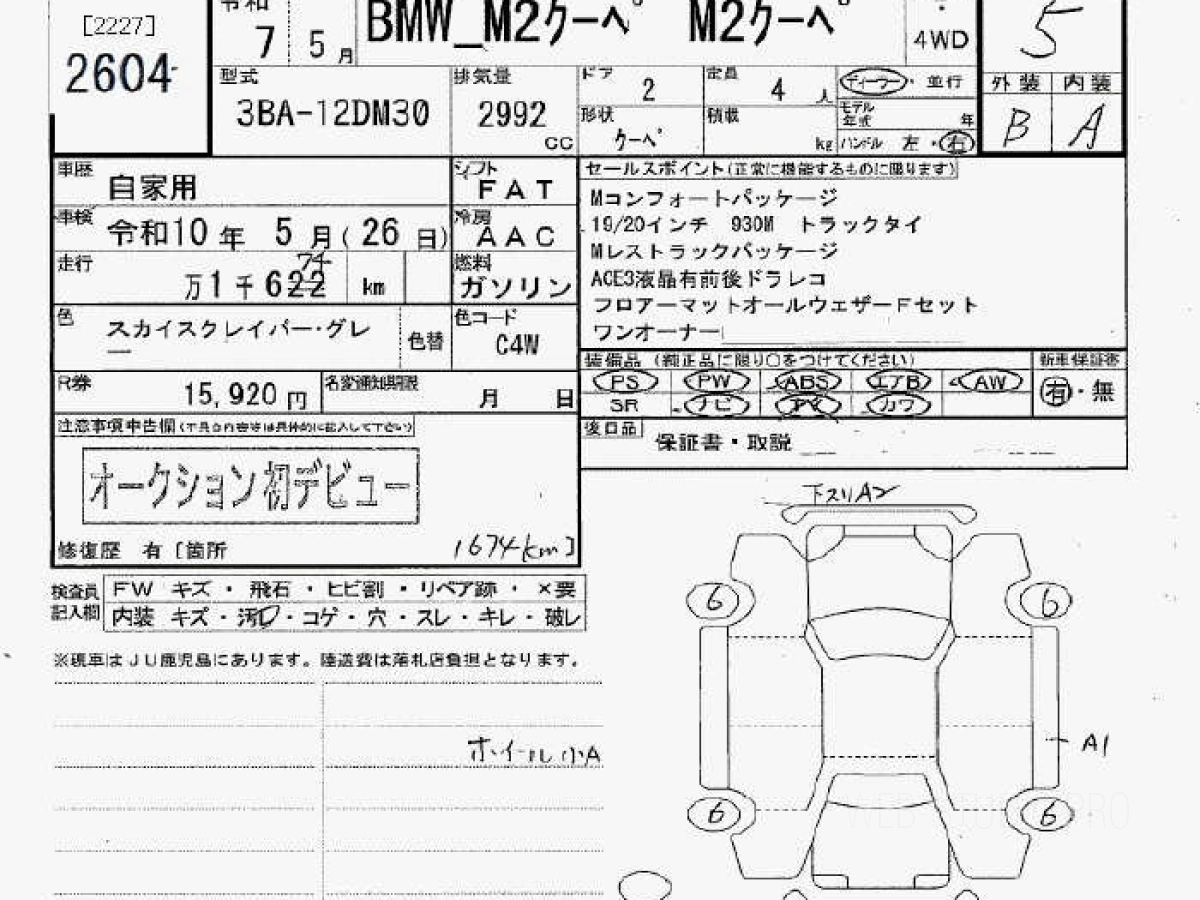 [2227]
2604
令和
7 5月
BMW_M2クーペ M2クーペ
・
4WD
5
外装 内装
B A
型式
3BA-12DM30
排気量
2992
CC
ドア
2
定員
4 人
形状
クーペ
積載
kg
ディーラー・並行
モデル年式 年
ハンドル 左・右
車歴
自家用
シフト
FAT
車検
令和10年 5月(26日)
冷房
AAC
走行
74
万1千622 km
燃料
ガソリン
色
スカイスクレイパー・グレー
色替
色コード
C4W
R券
15,920円
名変通知期限
月 日
セールスポイント(正常に機能するものに限ります)
Mコンフォートパッケージ
19/20インチ 930M トラックタイ
Mレストラックパッケージ
ACE3液晶有前後ドラレコ
フロアーマットオールウェザーFセット
ワンオーナー
装備品 (純正品に限り○をつけてください)
新車保証書
PS PW ABS エアB AW
SR ナビ カワ
有・無
後日品
保証書・取説
注意事項申告欄(不具合内容等は具体的に記入して下さい)
オークション初デビュー
修復歴 有〔箇所
1674km〕
検査員記入欄
FW キズ・飛石・ヒビ割・リペア跡・×要
内装 キズ・汚・コゲ・穴・スレ・キレ・破レ
※現車はJU鹿児島にあります。陸送費は落札店負担となります。
ホイール小A
下スリA2
6 6
A1
6 6